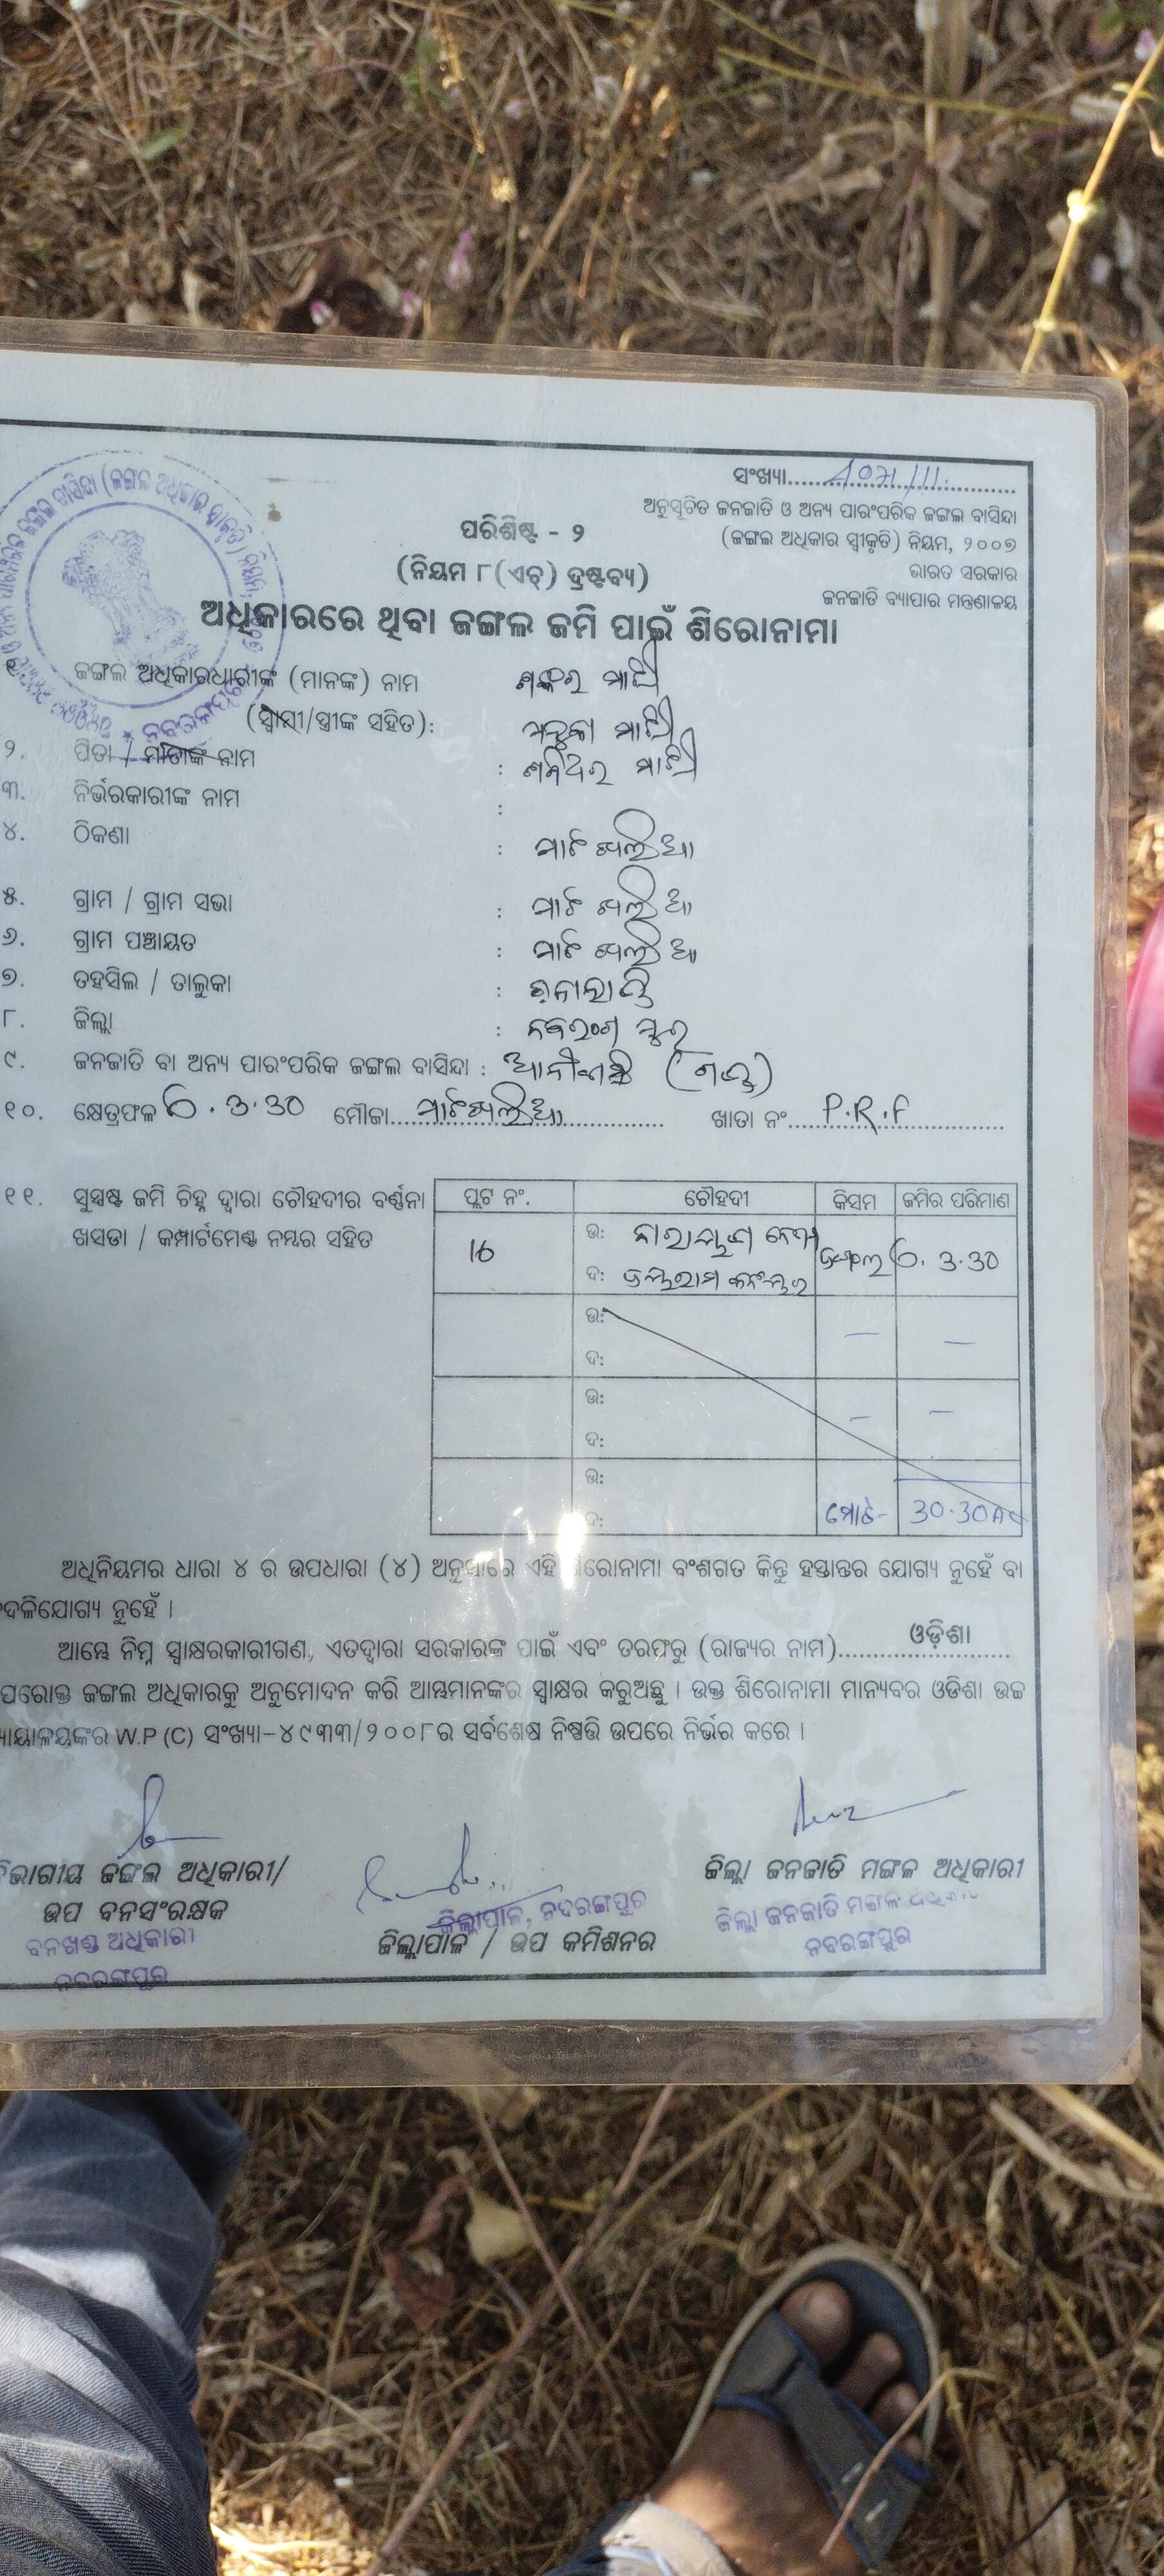 ସଂଖ୍ୟା....................
ଅନୁସୂଚିତ ଜନଜାତି ଓ ଅନ୍ୟ ପାରଂପରିକ ଜଙ୍ଗଲ ବାସିନ୍ଦା
(ଜଙ୍ଗଲ ଅଧିକାର ସ୍ୱୀକୃତି) ନିୟମ, ୨୦୦୭
ଭାରତ ସରକାର
ଜନଜାତି ବ୍ୟାପାର ମନ୍ତ୍ରଣାଳୟ
ପରିଶିଷ୍ଟ - ୨
(ନିୟମ ୮(ଏଚ୍) ଦ୍ରଷ୍ଟବ୍ୟ)
ଅଧିକାରରେ ଥିବା ଜଙ୍ଗଲ ଜମି ପାଇଁ ଶିରୋନାମା
ଜଙ୍ଗଲ ଅଧିକାରଧାରୀଙ୍କ (ମାନଙ୍କ) ନାମ ଶଙ୍କର ମାଝୀ
(ସ୍ୱାମୀ/ସ୍ତ୍ରୀଙ୍କ ସହିତ): ମାଝୀ
୨. ପିତା / ମାତାଙ୍କ ନାମ : ମାଝୀ
୩. ନିର୍ଭରକାରୀଙ୍କ ନାମ :
୪. ଠିକଣା : ମାଟିଖଲିଆ
୫. ଗ୍ରାମ / ଗ୍ରାମ ସଭା : ମାଟିଖଲିଆ
୬. ଗ୍ରାମ ପଞ୍ଚାୟତ : ମାଟିଖଲିଆ
୭. ତହସିଲ / ତାଲୁକା :
୮. ଜିଲ୍ଲା : ନବରଂଗପୁର
୯. ଜନଜାତି ବା ଅନ୍ୟ ପାରଂପରିକ ଜଙ୍ଗଲ ବାସିନ୍ଦା : (ଗଣ୍ଡ)
୧୦. କ୍ଷେତ୍ରଫଳ 3.30 ମୌଜା....ମାଟିଖଲିଆ.... ଖାତା ନଂ....P.R.F....
୧୧. ସୁସ୍ପଷ୍ଟ ଜମି ଚିହ୍ନ ଦ୍ୱାରା ଚୌହଦୀର ବର୍ଣ୍ଣନା
ଖସଡା / କମ୍ପାର୍ଟମେଣ୍ଟ ନମ୍ବର ସହିତ
ପ୍ଲଟ ନଂ. ଚୌହଦୀ କିସମ ଜମିର ପରିମାଣ
16 ଉ: ନାରାୟଣ ଜଙ୍ଗଲ 3.30
ଦ: ଜୟରାମ
ଉ: — —
ଦ:
ଉ: — —
ଦ:
ଉ:
ଦ: ମୋଟ-
ଅଧିନିୟମର ଧାରା ୪ ର ଉପଧାରା (୪) ଅନୁସାରେ ଏହି ଶିରୋନାମା ବଂଶଗତ କିନ୍ତୁ ହସ୍ତାନ୍ତର ଯୋଗ୍ୟ ନୁହେଁ ବା
ବଦଳିଯୋଗ୍ୟ ନୁହେଁ ।
ଆମ୍ଭେ ନିମ୍ନ ସ୍ୱାକ୍ଷରକାରୀଗଣ, ଏତଦ୍ୱାରା ସରକାରଙ୍କ ପାଇଁ ଏବଂ ତରଫରୁ (ରାଜ୍ୟର ନାମ)....ଓଡ଼ିଶା....
ପରୋକ୍ତ ଜଙ୍ଗଲ ଅଧିକାରକୁ ଅନୁମୋଦନ କରି ଆମ୍ଭମାନଙ୍କର ସ୍ୱାକ୍ଷର କରୁଅଛୁ । ଉକ୍ତ ଶିରୋନାମା ମାନ୍ୟବର ଓଡିଶା ଉଚ୍ଚ
ନ୍ୟାୟାଳୟଙ୍କର W.P (C) ସଂଖ୍ୟା-୪୯୩୩/୨୦୦୮ର ସର୍ବଶେଷ ନିଷ୍ପତ୍ତି ଉପରେ ନିର୍ଭର କରେ ।
ବିଭାଗୀୟ ଜଙ୍ଗଲ ଅଧିକାରୀ/
ଉପ ବନସଂରକ୍ଷକ
ବନଖଣ୍ଡ ଅଧିକାରୀ
ନବରଙ୍ଗପୁର
ଜିଲ୍ଲାପାଳ, ନବରଙ୍ଗପୁର
ଜିଲ୍ଲାପାଳ / ଉପ କମିଶନର
ଜିଲ୍ଲା ଜନଜାତି ମଙ୍ଗଳ ଅଧିକାରୀ
ଜିଲ୍ଲା ଜନଜାତି ମଙ୍ଗଳ ଅଧିକାରୀ
ନବରଙ୍ଗପୁର